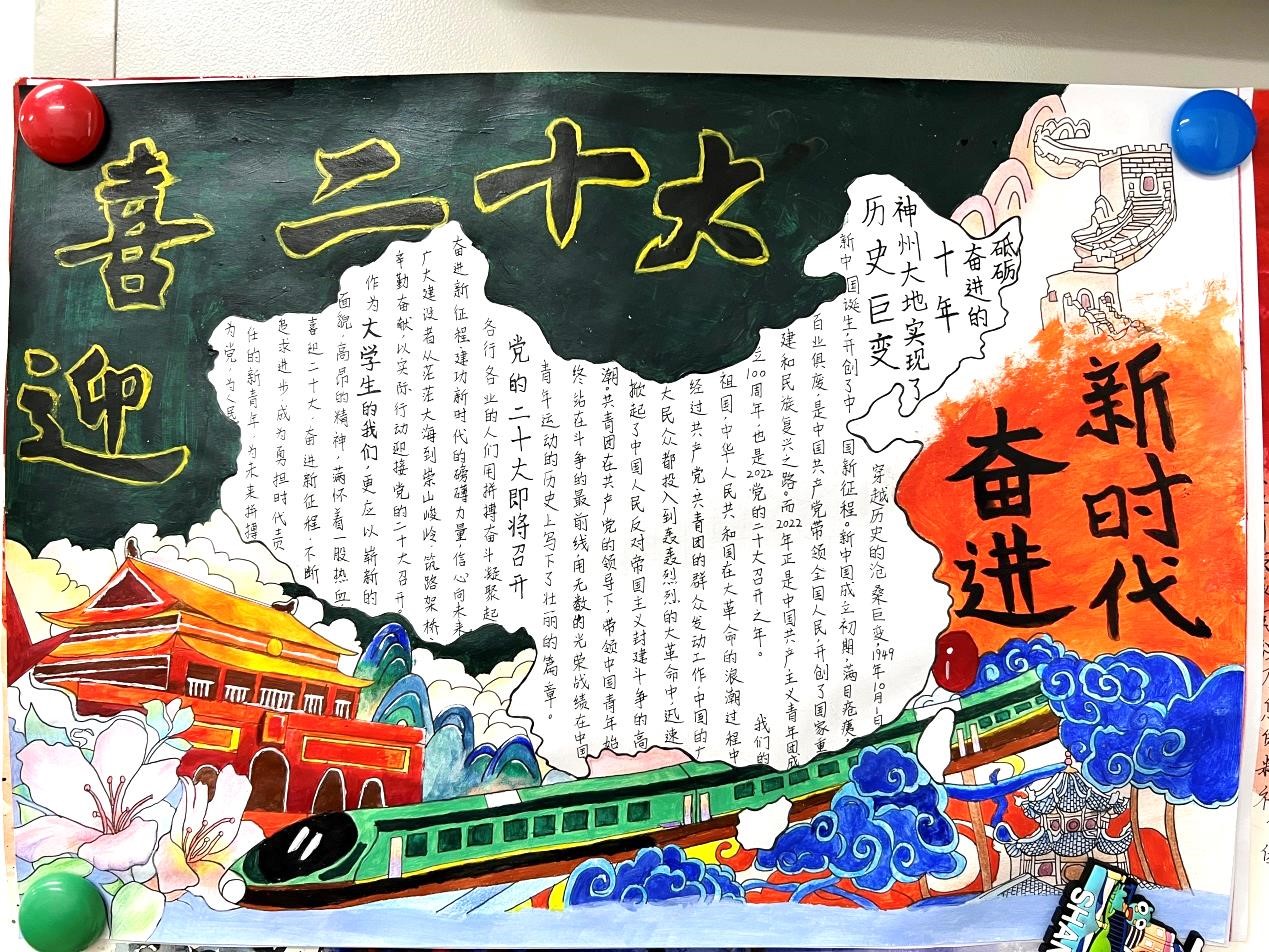 喜迎二十大
新时代
奋进
砥砺
奋进的
十年
神州大地实现了
历史巨变
穿越历史的沧桑巨变,1949年10月1日
新中国诞生,开创了中国新征程。新中国成立初期,满目疮痍
百业俱废,是中国共产党带领全国人民,开创了国家重
建和民族复兴之路。而2022年正是中国共产主义青年团成
立100周年,也是2022党的二十大召开之年。 我们的
祖国,中华人民共和国在大革命的浪潮过程中
经过共产党,共青团的群众发动工作,中国的广
大民众都投入到轰轰烈烈的大革命中,迅速
掀起了中国人民反对帝国主义封建斗争的高
潮。共青团在共产党的领导下,带领中国青年始
终站在斗争的最前线,用无数的光荣战绩在中国
青年运动的历史上写下了壮丽的篇章。
党的二十大即将召开
各行各业的人们用拼搏奋斗凝聚起
奋进新征程建功新时代的磅礴力量,信心向未来
广大建设者从茫茫大海到崇山峻岭,筑路架桥,
辛勤奋献,以实际行动迎接党的二十大召开
作为大学生的我们,更应以崭新的
面貌,高昂的精神,满怀着一股热血,
喜迎二十大,奋进新征程,不断
追求进步,成为勇担时代责
任的新青年,为未来拼搏
为党,为人民
SHAN